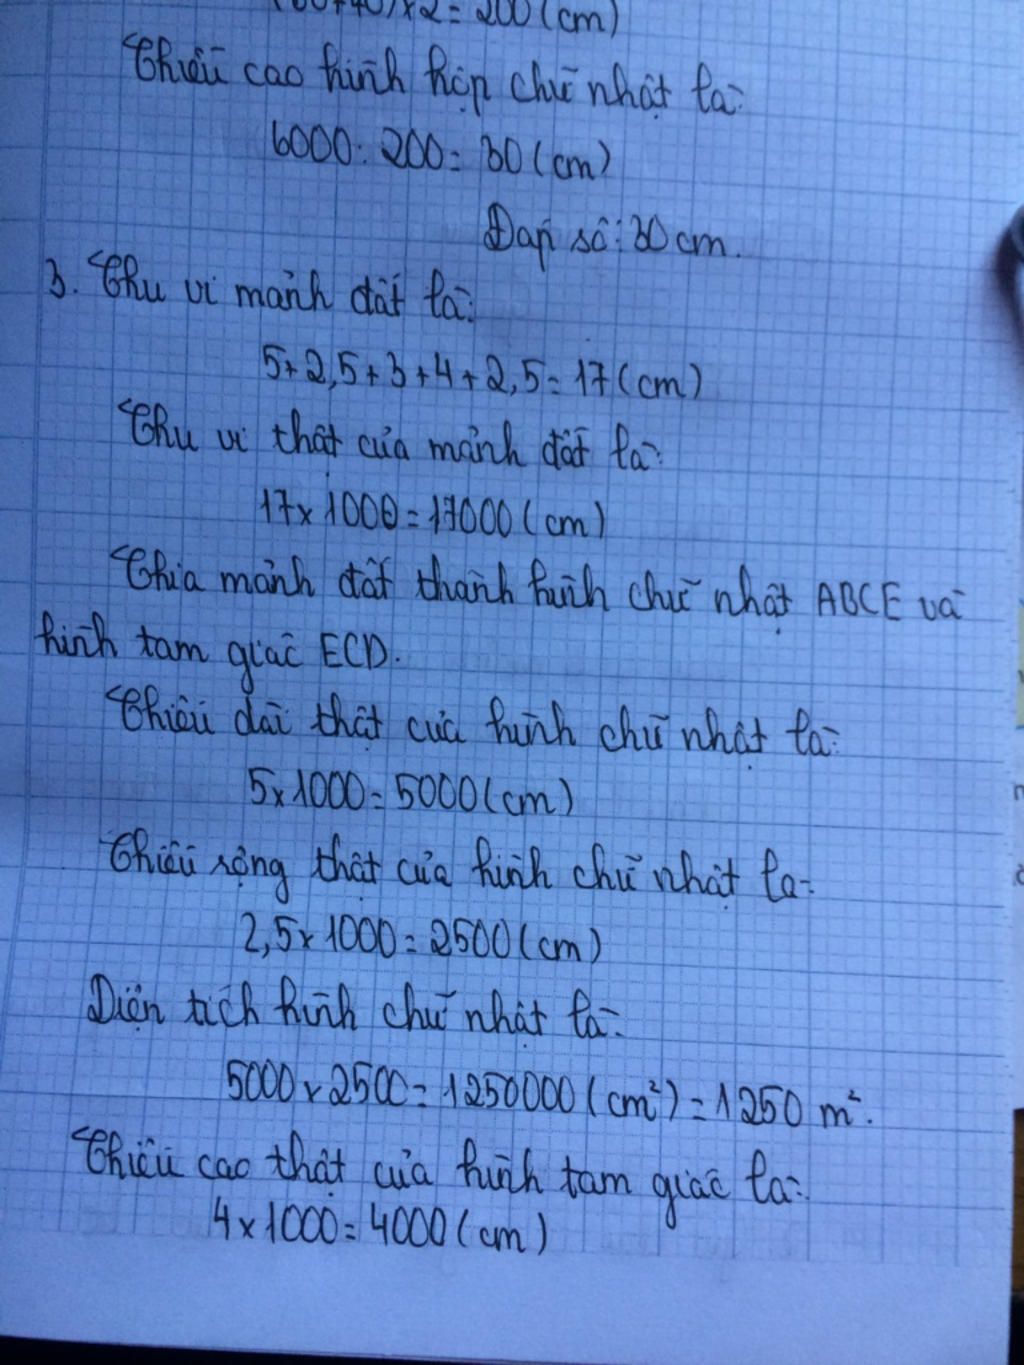 (60+40)x2=200(cm)
Chiều cao hình hộp chữ nhật là:
6000:200=30(cm)
Đáp số: 30cm.
3. Chu vi mảnh đất là:
5+2,5+3+4+2,5=17(cm)
Chu vi thật của mảnh đất là:
17x1000=17000(cm)
Chia mảnh đất thành hình chữ nhật ABCE và
hình tam giác ECD.
Chiều dài thật của hình chữ nhật là:
5x1000=5000(cm)
Chiều rộng thật của hình chữ nhật là:
2,5x1000=2500(cm)
Diện tích hình chữ nhật là:
5000x2500=1250000(cm²)=1250 m².
Chiều cao thật của hình tam giác là:
4x1000=4000(cm)